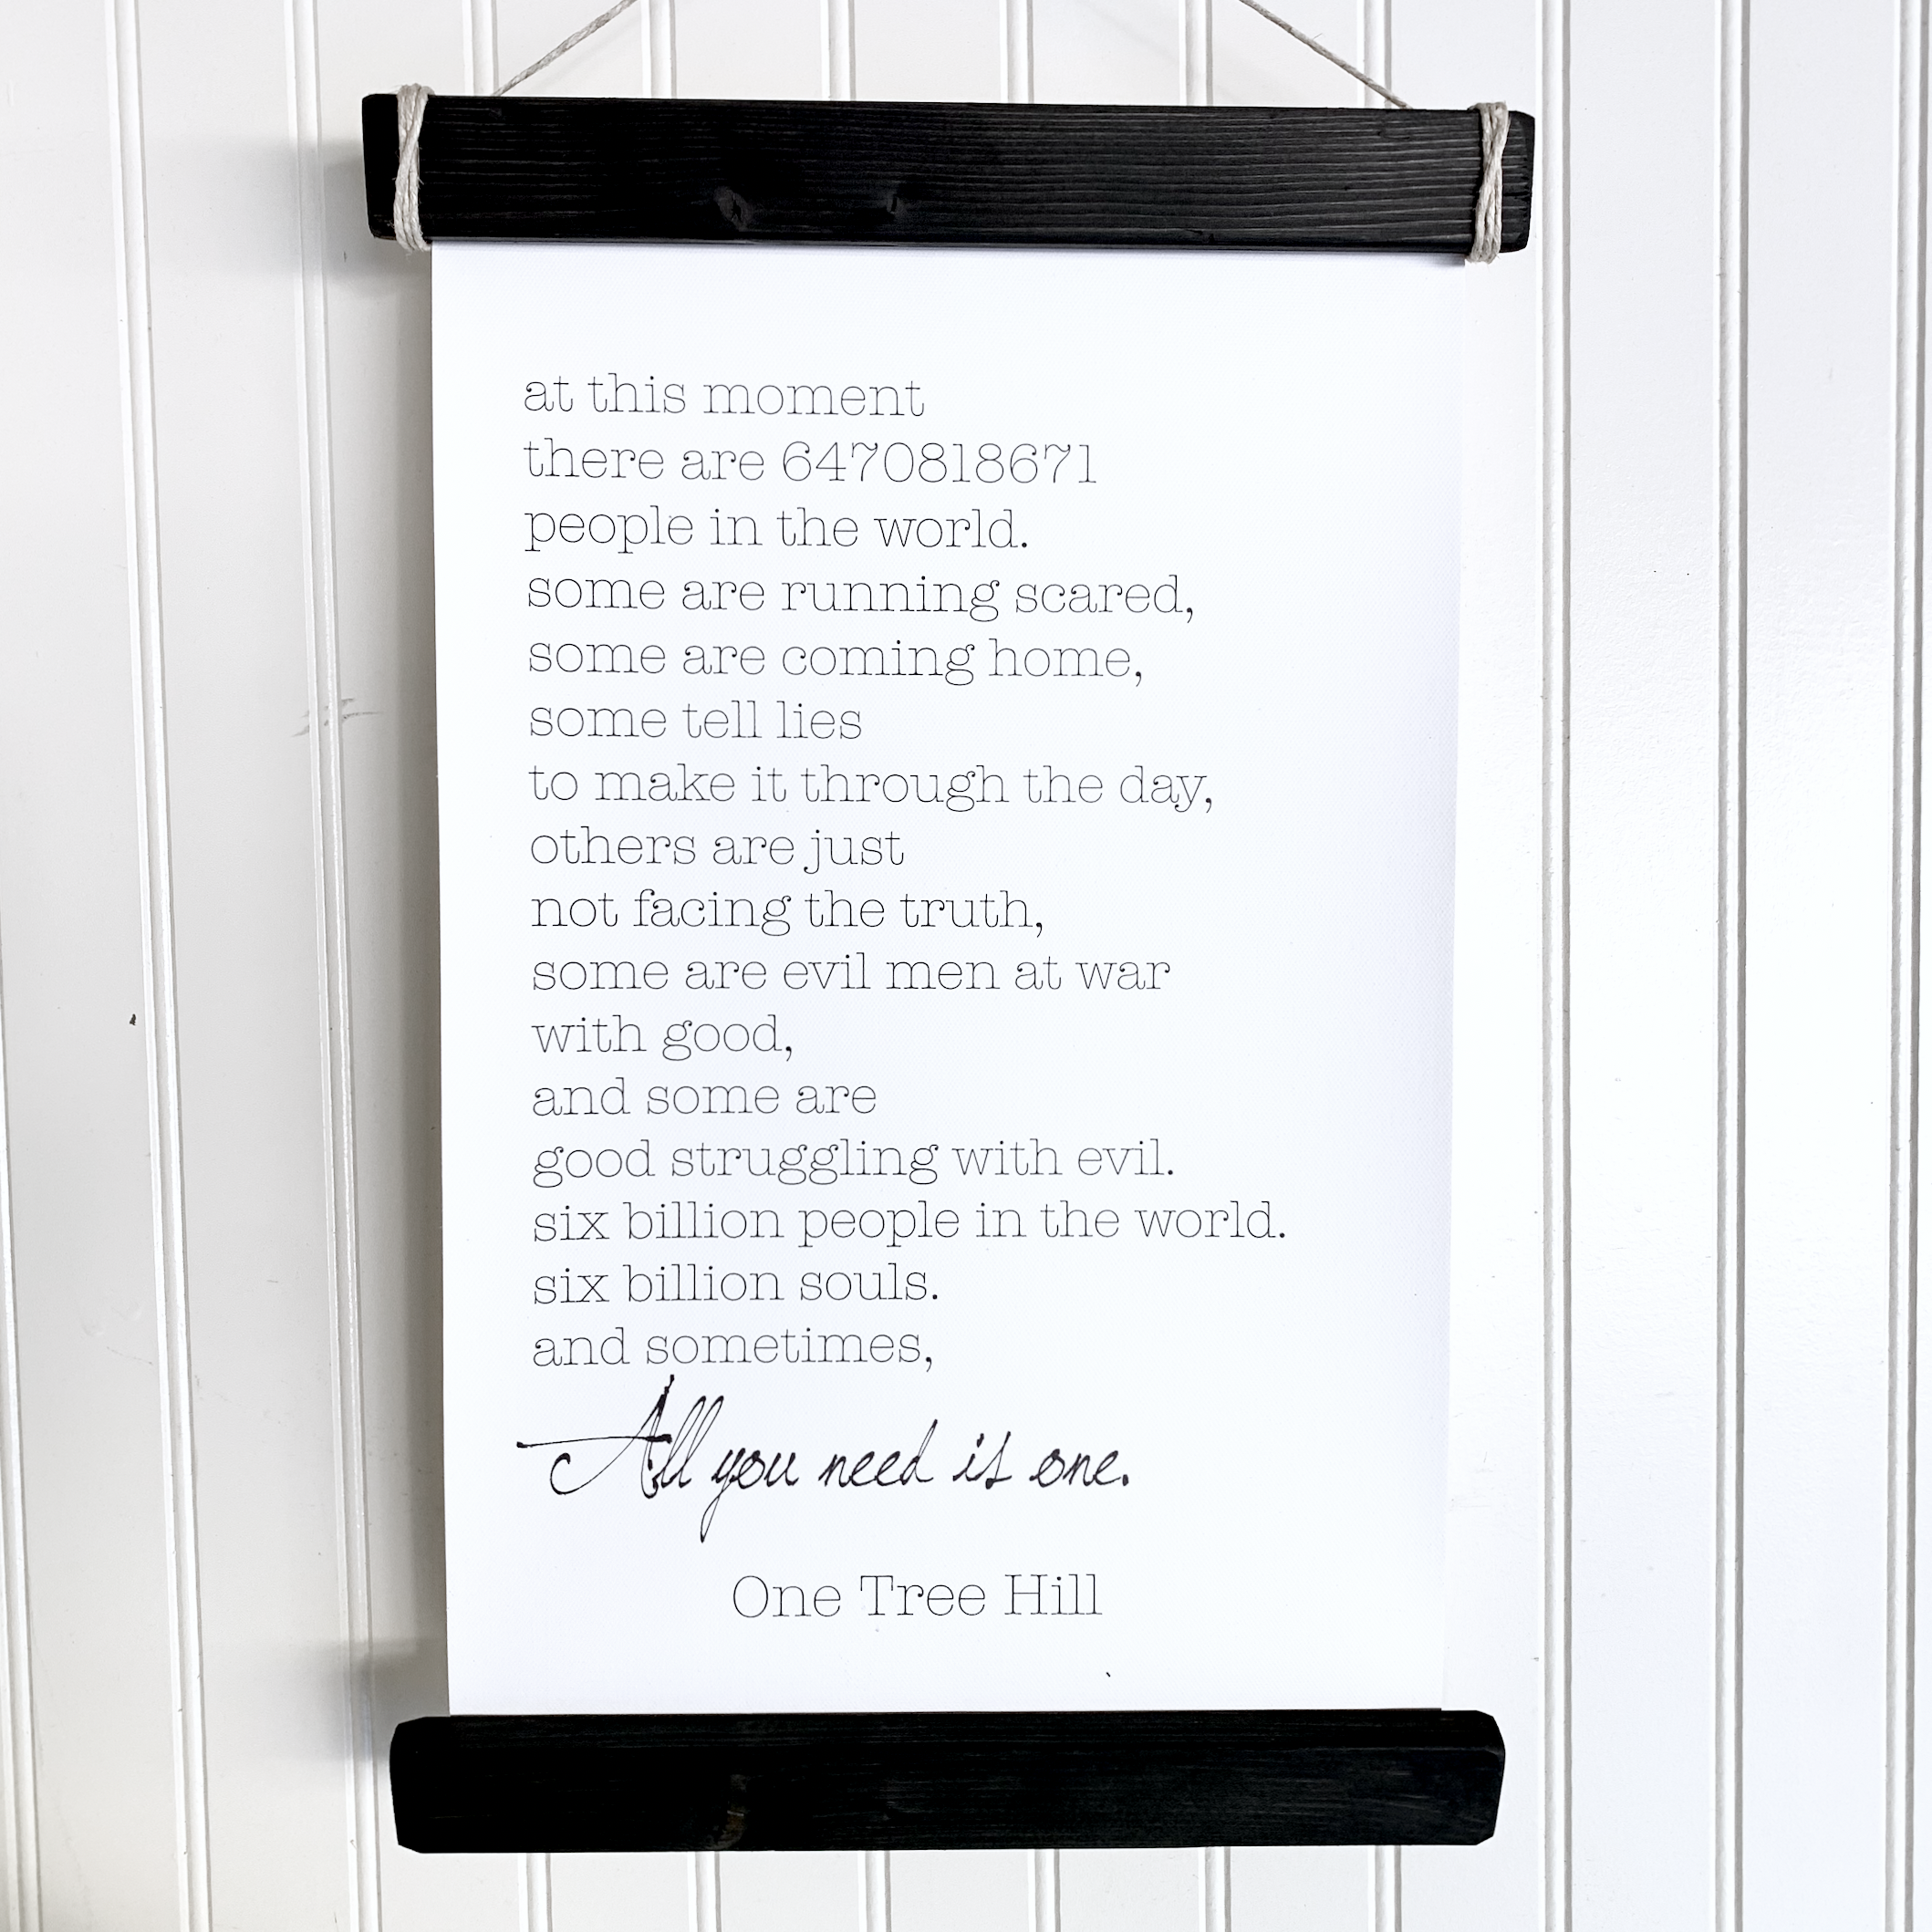 at this moment
there are 6470818671
people in the world.
some are running scared,
some are coming home,
some tell lies
to make it through the day,
others are just
not facing the truth,
some are evil men at war
with good,
and some are
good struggling with evil.
six billion people in the world.
six billion souls.
and sometimes,
All you need is one.
One Tree Hill